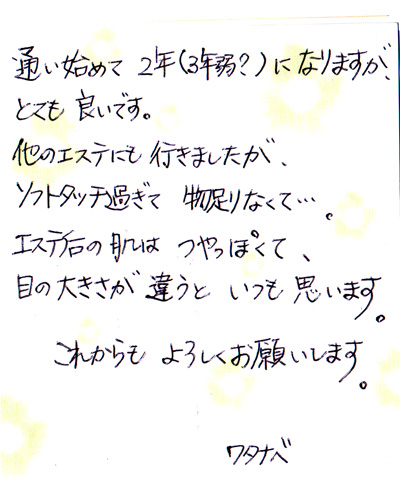 通い始めて 2年(3年弱?)になりますが、
とても 良いです。
他のエステにも 行きましたが、
ソフトタッチ過ぎて 物足りなくて…。
エステ后の 肌は つやっぽくて、
目の大きさが 違うと いつも 思います。
これからも よろしくお願いします。
ワタナベ